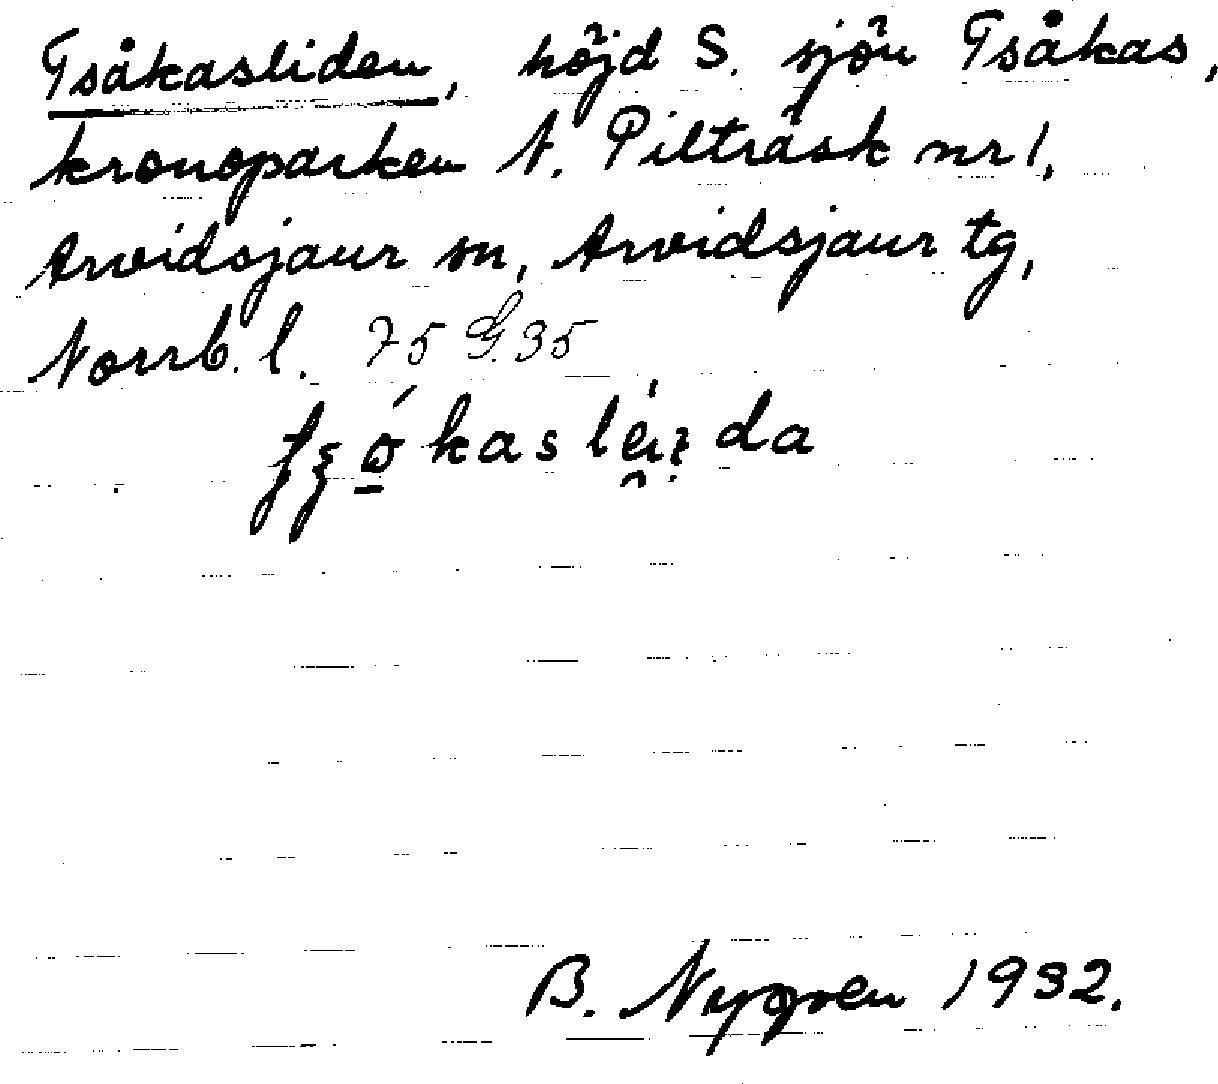 Tsåkasliden, höjd S. sjön Tsåkas,
kronoparken N. Pilträsk nr 1,
Arvidsjaur sn, Arvidsjaur tg,
Norrb. l. 75 G. 35
B. Nygren 1932.